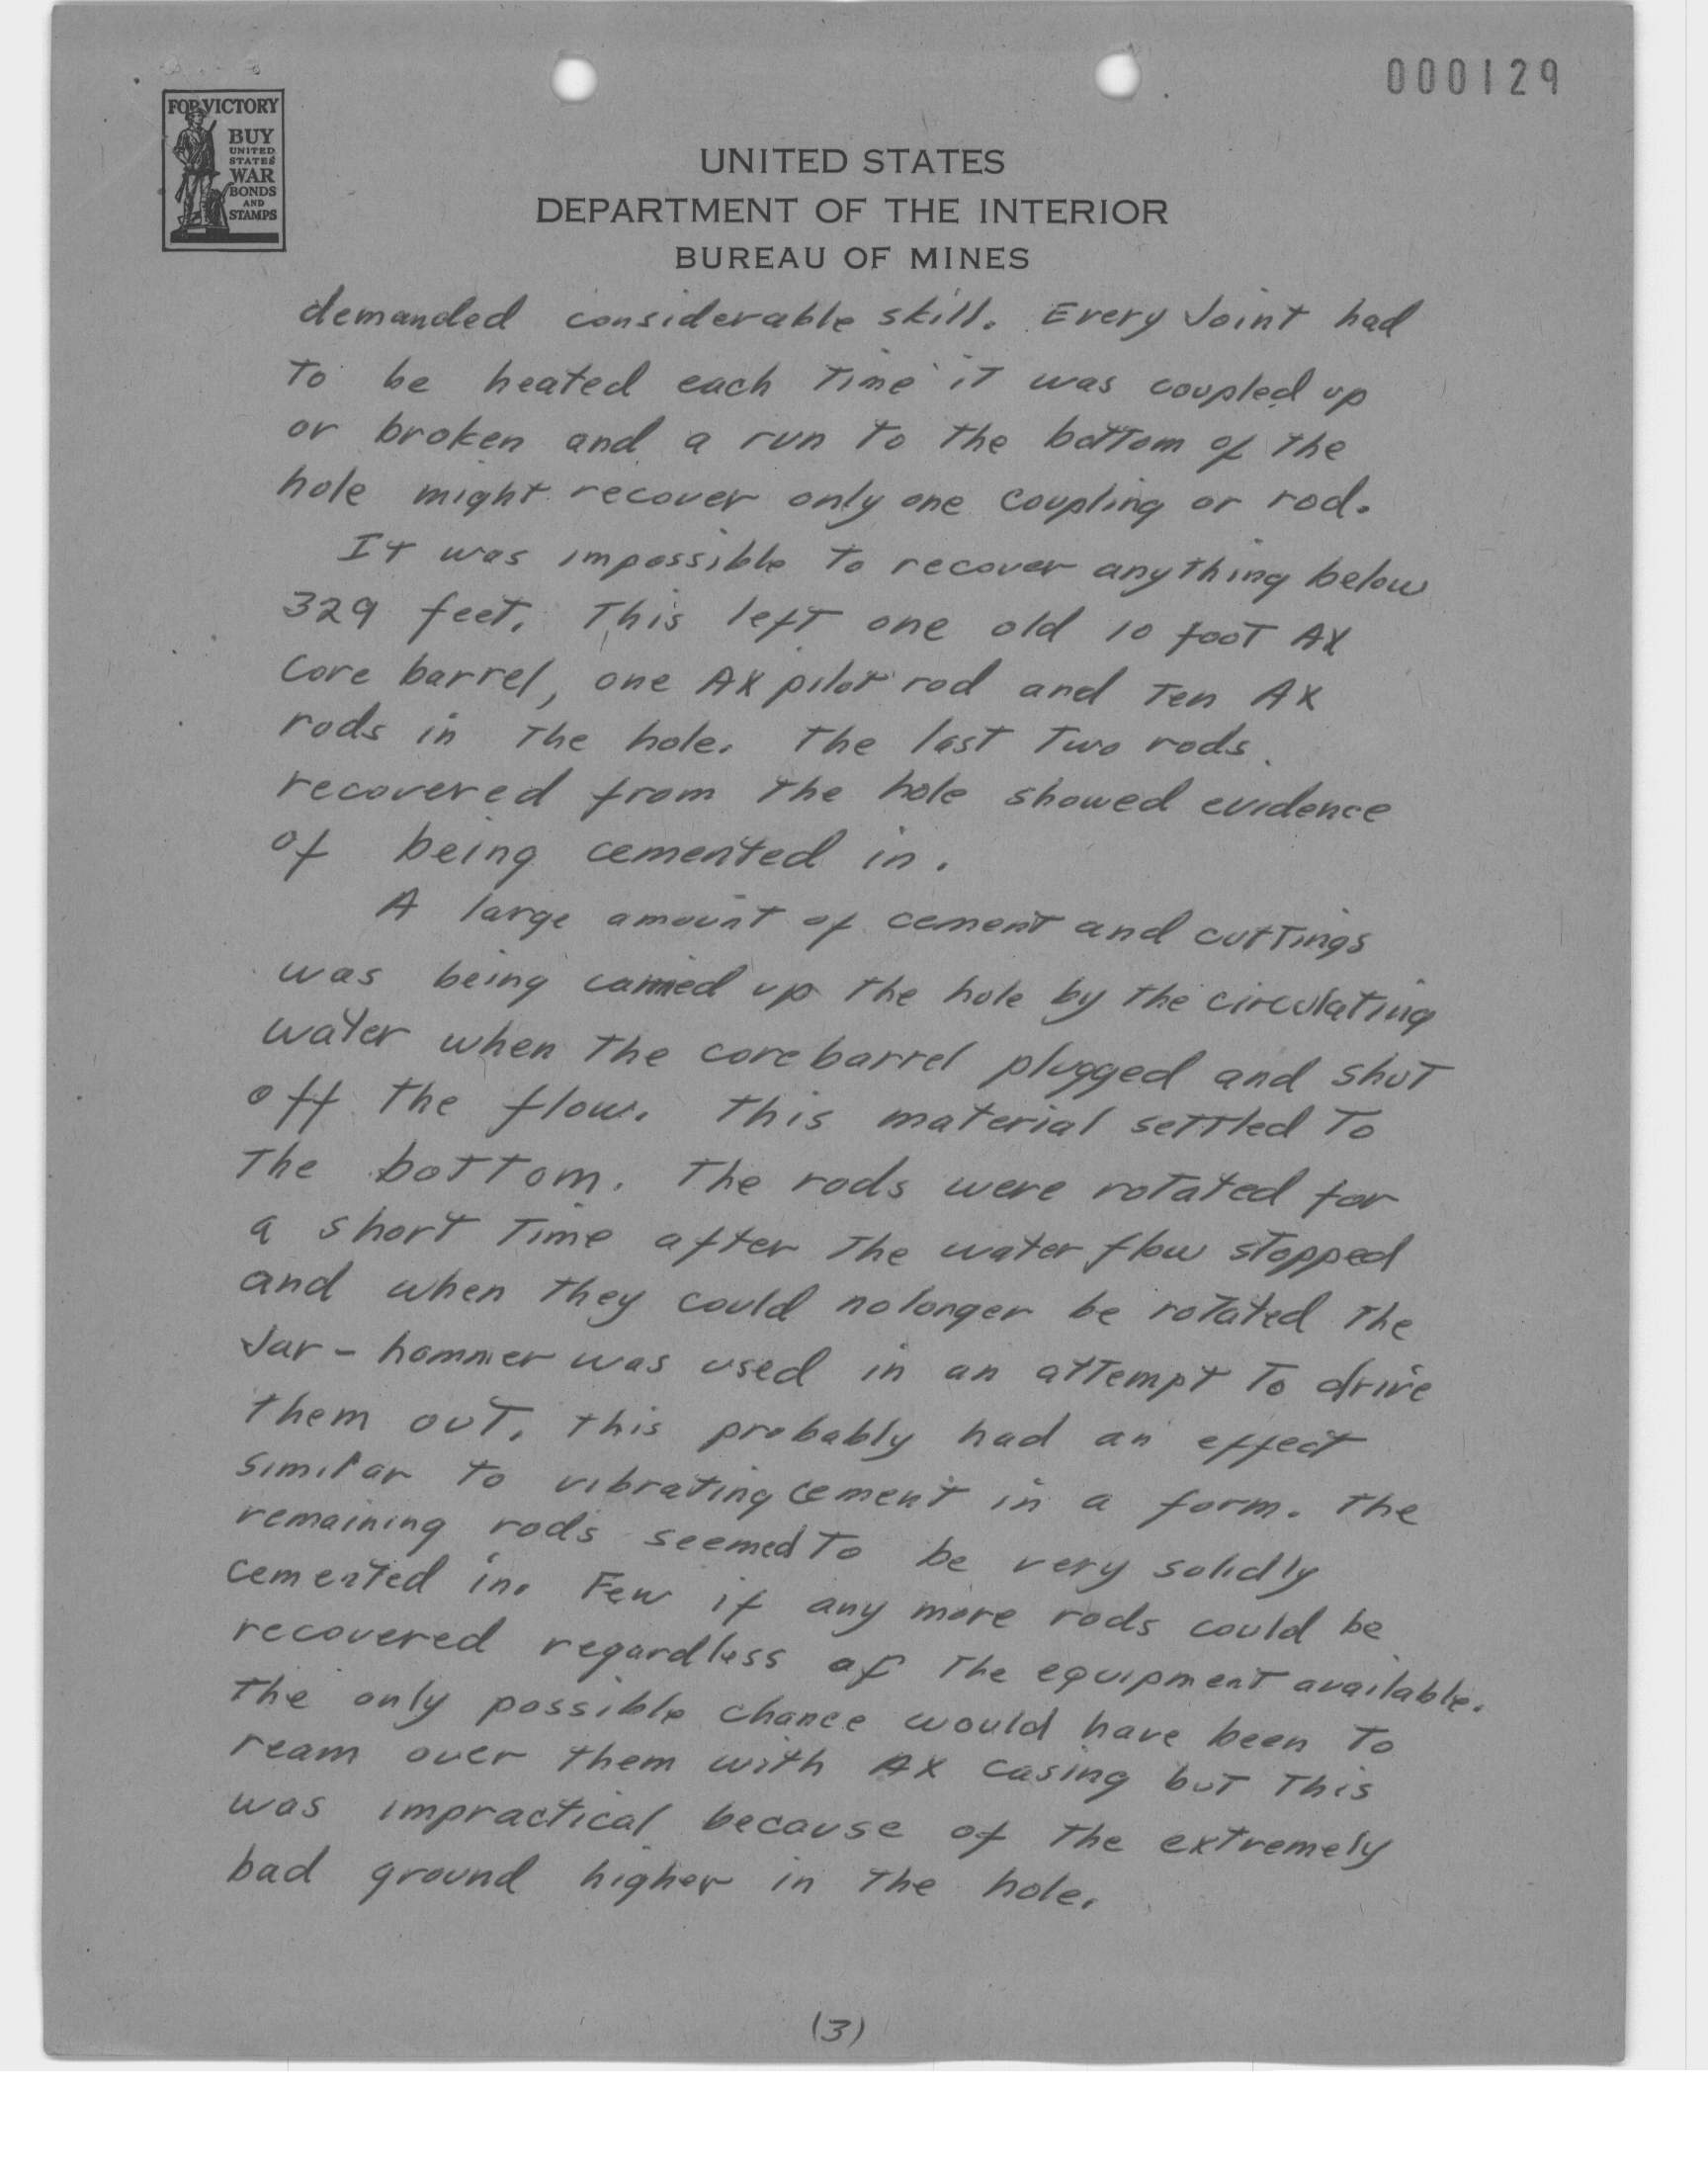 000129
FOR VICTORY
BUY
UNITED
STATES
WAR
BONDS
AND
STAMPS
UNITED STATES
DEPARTMENT OF THE INTERIOR
BUREAU OF MINES
demanded considerable skill. Every Joint had
to be heated each time it was coupled up
or broken and a run to the bottom of the
hole might recover only one coupling or rod.
It was impossible to recover anything below
329 feet. This left one old 10 foot AX
core barrel, one AX pilot rod and ten AX
rods in the hole. The last two rods
recovered from the hole showed evidence
of being cemented in.
A large amount of cement and cuttings
was being carried up the hole by the circulating
water when the core barrel plugged and shut
off the flow. This material settled to
the bottom. The rods were rotated for
a short time after the water flow stopped
and when they could no longer be rotated the
Jar-hammer was used in an attempt to drive
them out. This probably had an effect
similar to vibrating cement in a form. The
remaining rods seemed to be very solidly
cemented in. Few if any more rods could be
recovered regardless of the equipment available.
The only possible chance would have been to
ream over them with AX casing but this
was impractical because of the extremely
bad ground higher in the hole.
(3)